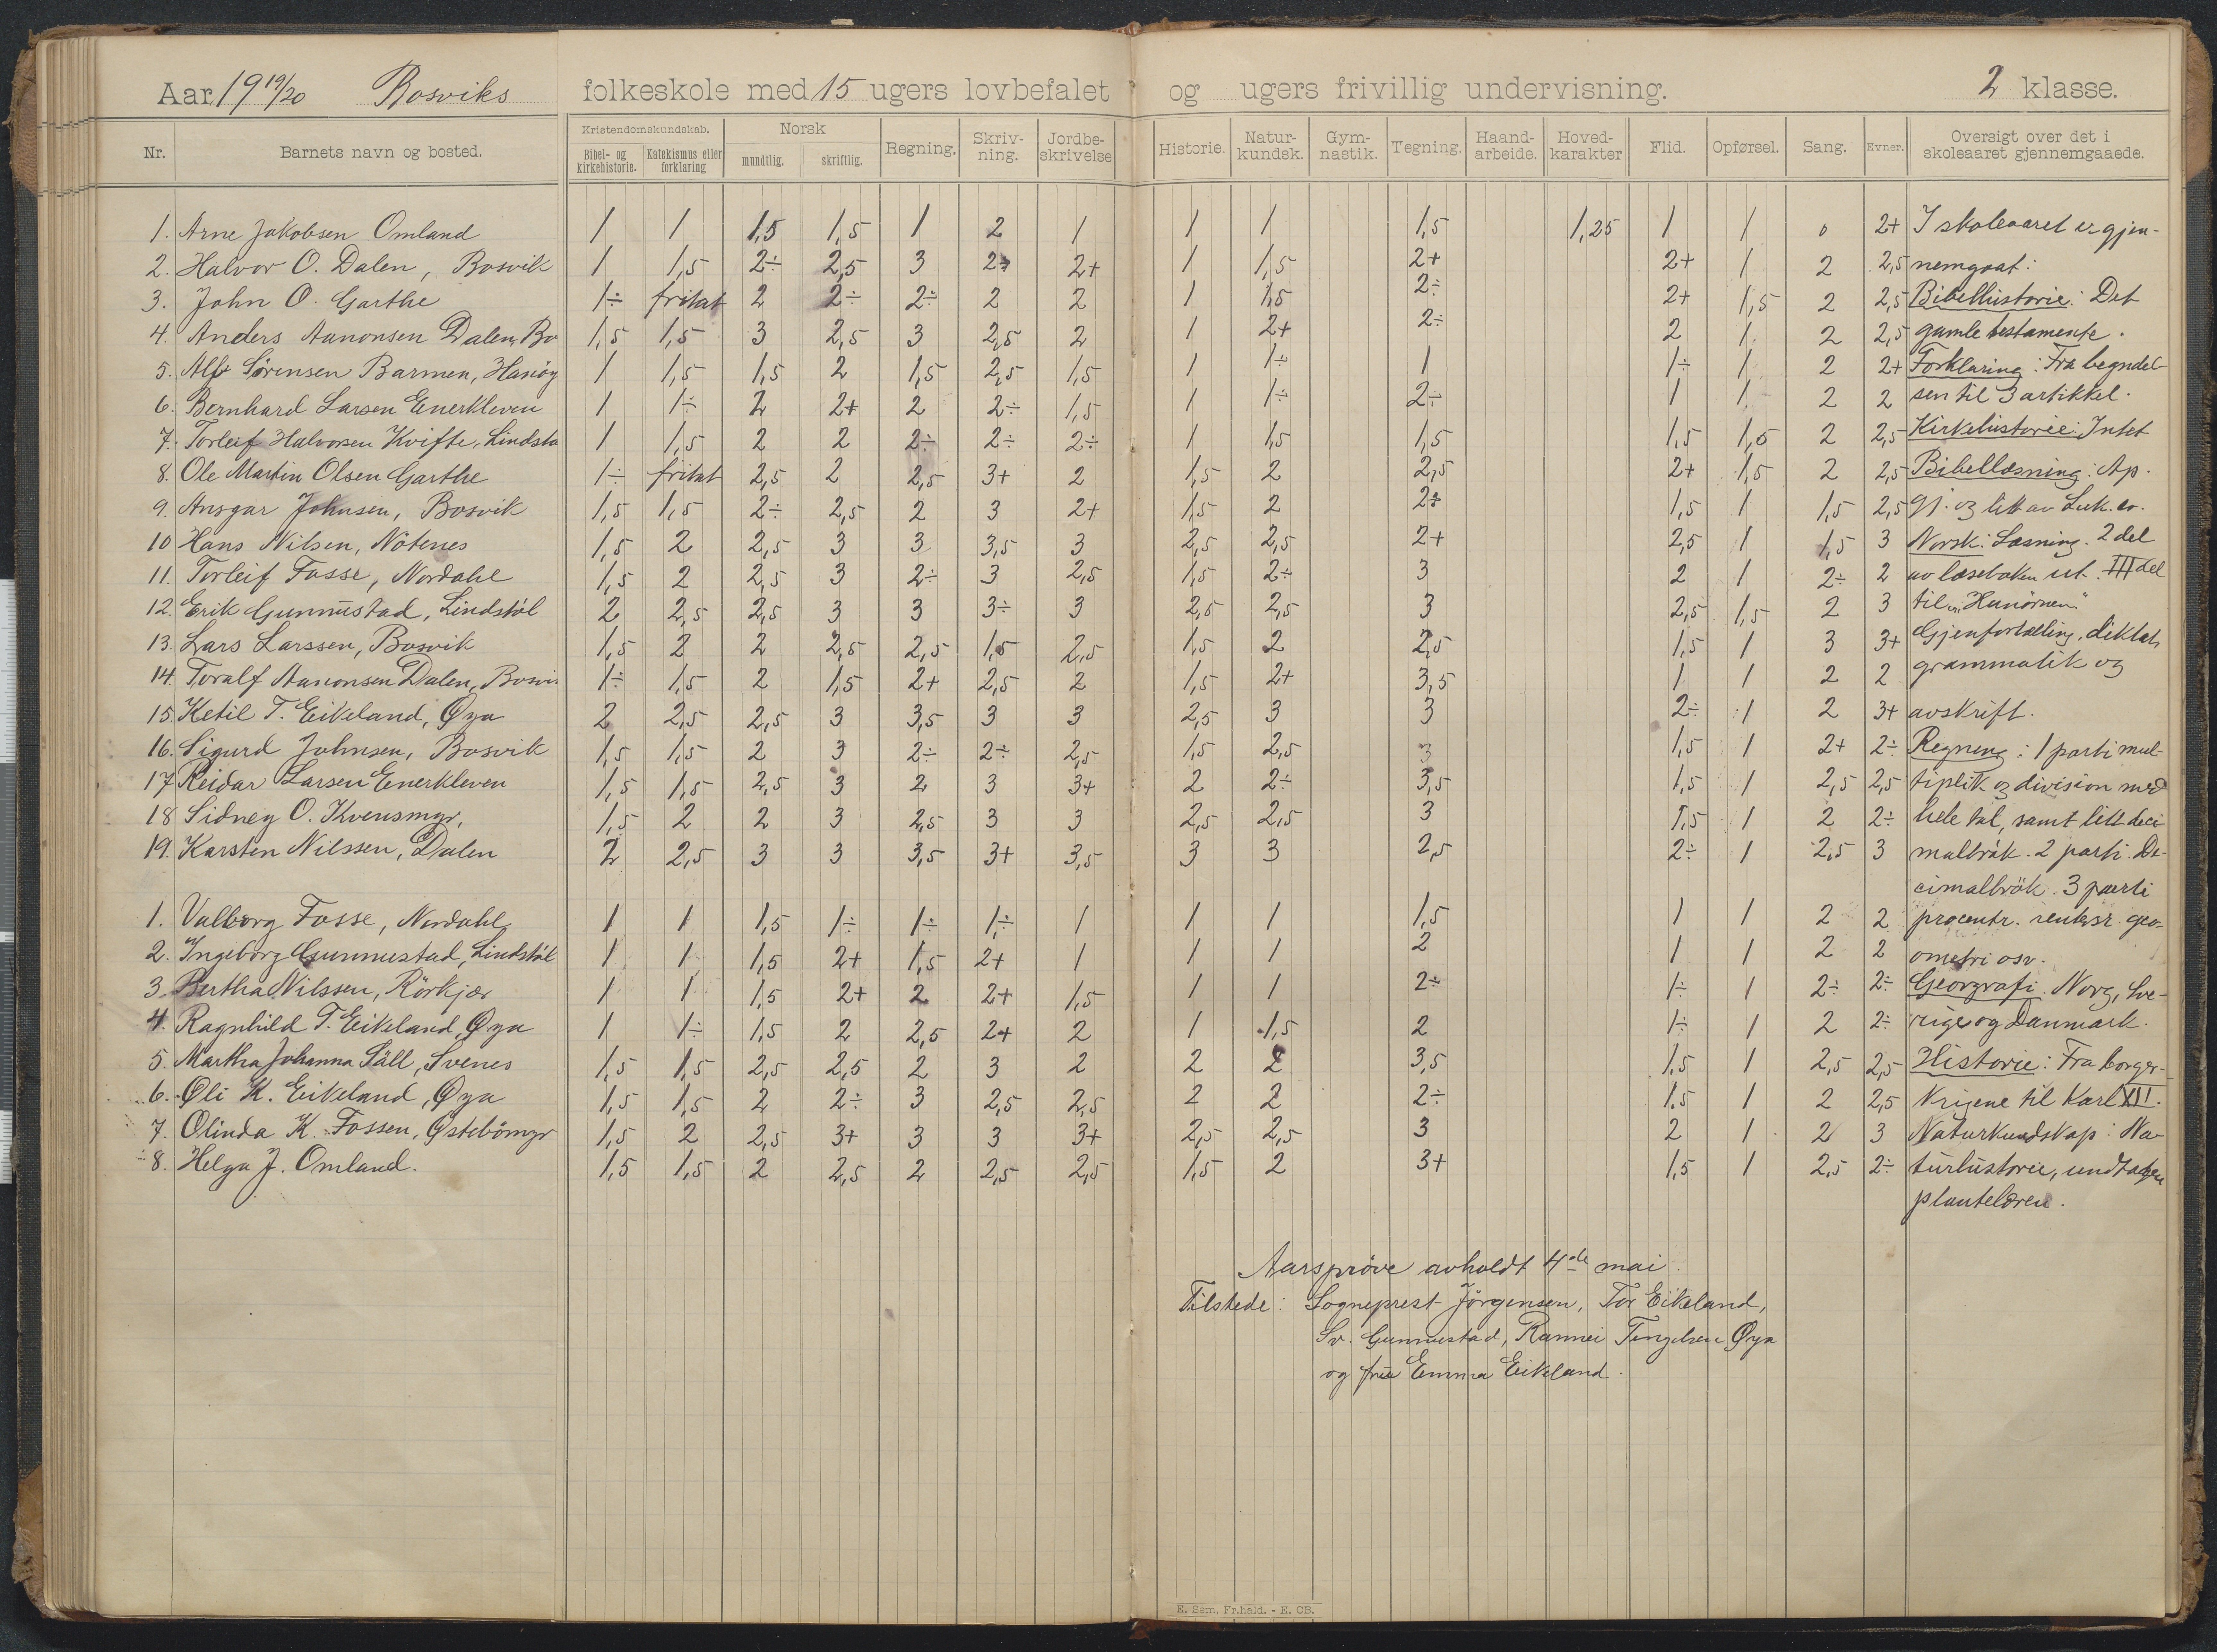 Aar 19 19/20 Bosviks folkeskole med 15 ugers lovbefalet og ugers frivillig undervisning. 2 klasse.
Nr. Barnets navn og bosted. Kristendomskundskab. Bibel- og kirkehistorie. Katekismus eller forklaring Norsk mundtlig. skriftlig. Regning. Skriv-ning. Jordbe-skrivelse Historie. Natur-kundsk. Gym-nastik. Tegning. Haand-arbeide. Hoved-karakter Flid. Opførsel. Sang. Evner. Oversigt over det i skoleaaret gjennemgaaede.
1. Arne Jakobsen Omland 1 1 1,5 1,5 1 2 1 1 1 1,5 1,25 1 1 0 2+ I skoleaaret er gjen-
2. Halvor O. Dalen, Bosvik 1 1,5 2÷ 2,5 3 2÷ 2+ 1 1,5 2+ 2+ 1 2 2,5 nemgaat:
3. John O. Garthe 1÷ fritat 2 2÷ 2÷ 2 2 1 1,5 2÷ 2+ 1,5 2 2,5 Bibelhistorie: Det
4. Anders Aanonsen Dalen, Bo 1,5 1,5 3 2,5 3 2,5 2 1 2+ 2÷ 2 1 2 2,5 gamle testamente.
5. Alf Sørensen Barmen, Hasøy 1 1,5 1,5 2 1,5 2,5 1,5 1 1÷ 1 1÷ 1 2 2+ Forklaring: Fra begyndel-
6. Bernhard Larsen Enerkleven 1 1÷ 2 2+ 2 2÷ 1,5 1 1÷ 2÷ 1 1 2 2 sen til 3 artikkel.
7. Torleif Halvorsen Kvifte, Lindstø 1 1,5 2 2 2÷ 2÷ 2÷ 1 1,5 1,5 1,5 1,5 2 2,5 Kirkehistorie: Intet
8. Ole Martin Olsen Garthe 1÷ fritat 2,5 2 2,5 3+ 2 1,5 2 2,5 2+ 1,5 2 2,5 Bibellæsning: Ap.
9. Ansgar Johnsen, Bosvik 1,5 1,5 2÷ 2,5 2 3 2+ 1,5 2 2÷ 1,5 1 1,5 2,5 gj. og litt av Luk. ev.
10 Hans Nilsen, Nötenes 1,5 2 2,5 3 3 3,5 3 2,5 2,5 2+ 2,5 1 1,5 3 Norsk: Læsning. 2 del
11. Torleif Fosse, Nordahl 1,5 2 2,5 3 2÷ 3 2,5 1,5 2÷ 3 2 1 2÷ 2 av læseboken ut. III del
12. Erik Gunnustad, Lindstöl 2 2,5 2,5 3 3 3÷ 3 2,5 2,5 3 2,5 1,5 2 3 til "Hunörnen"
13. Lars Larssen, Bosvik 1,5 2 2 2,5 2,5 1,5 2,5 1,5 2 2,5 1,5 1 3 3+ Gjenfortælling, diktat,
14. Toralf Aanonsen Dalen, Bosvi 1÷ 1,5 2 1,5 2+ 2,5 2 1,5 2+ 3,5 1 1 2 2 grammatik og
15. Ketil T. Eikeland, Øya 2 2,5 2,5 3 3,5 3 3 2,5 3 3 2÷ 1 2 3+ avskrift.
16. Sigurd Johnsen, Bosvik 1,5 1,5 2 3 2÷ 2÷ 2,5 1,5 2,5 3 1,5 1 2+ 2÷ Regning: 1 parti mul-
17 Reidar Larsen Enerkleven 1,5 1,5 2,5 3 2 3 3+ 2 2÷ 3,5 1,5 1 2,5 2,5 tiplik og division med
18 Sidney O. Kvensmyr, 1,5 2 2 3 2,5 3 3 2,5 2,5 3 1,5 1 2 2÷ hele tal, samt litt deci-
19. Karsten Nilssen, Dalen 2 2,5 3 3 3,5 3+ 3,5 3 3 2,5 2÷ 1 2,5 3 malbrök. 2 parti. De-
cimalbrök. 3 parti
1. Valborg Fosse, Nordahl 1 1 1,5 1÷ 1÷ 1÷ 1 1 1 1,5 1 1 2 2 procentr. rentesr. geo-
2. Ingeborg Gunnustad, Lindstöl 1 1 1,5 2+ 1,5 2+ 1 1 1 2 1 1 2 2 ometri osv.
3. Bertha Nilssen, Rörkjær 1 1 1,5 2+ 2 2+ 1,5 1 1 2÷ 1÷ 1 2÷ 2÷ Georgrafi. Norg, Sve-
4. Ragnhild T. Eikeland, Øya 1 1÷ 1,5 2 2,5 2+ 2 1 1,5 2 1÷ 1 2 2÷ rige og Danmark.
5. Martha Johanna Säll, Svenes 1,5 1,5 2,5 2,5 2 3 2 2 2 3,5 1,5 1 2,5 2,5 Historie: Fra borger-
6. Oli K. Eikeland, Øya 1,5 1,5 2 2÷ 3 2,5 2,5 2 2 2÷ 1.5 1 2 2,5 krigene til Karl XII.
7. Olinda K. Fossen, Østebömyr 1,5 2 2,5 3+ 3 3 3+ 2,5 2,5 3 2 1 2 3 Naturkundskap: Na-
8. Helga J. Omland. 1,5 1,5 2 2,5 2 2,5 2,5 1,5 2 3+ 1,5 1 2,5 2÷ turhistorie, undtagen
plantelæren.
Aarsprøve avholdt 4de mai.
Tilstede: Sogneprest Jörgensen, Tor Eikeland,
Sv. Gunnustad, Rannei Tengelsen Øya
og frue Emma Eikeland.
E. Sem, Fr.hald. - E. OB.